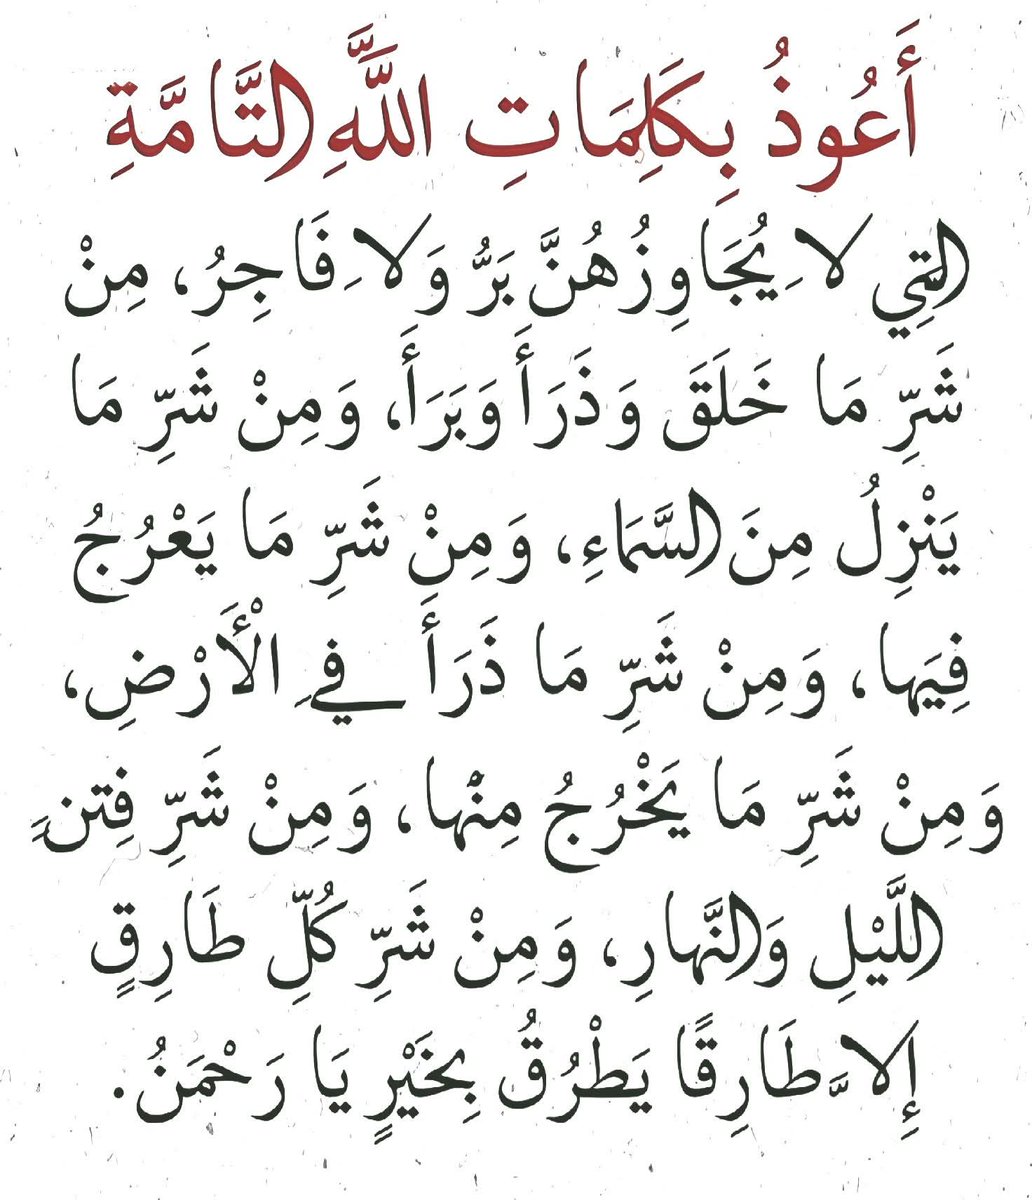 أَعُوذُ بِكَلِمَاتِ اللَّهِ التَّامَّةِ
التِي لا يُجَاوِزُهُنَّ بَرُّ وَلا فَاجِرُ، مِنْ
شَرِّ مَا خَلَقَ وَذَرَأَ وَبَرَأَ، وَمِنْ شَرِّ مَا
يَنْزِلُ مِنَ السَّمَاءِ، وَمِنْ شَرِّ مَا يَعْرُجُ
فِيَها، وَمِنْ شَرِّ مَا ذَرَأَ فِي الْأَرْضِ،
وَمِنْ شَرِّ مَا يَخْرُجُ مِنْها، وَمِنْ شَرِّ فِتنَِ
اللَّيْلِ وَالنَّهارِ، وَمِنْ شَرِّ كُلِّ طَارِقٍ
إِلاَّ طَارِقًا يَطْرُقُ بِخَيْرٍ يَا رَحْمَنُ.